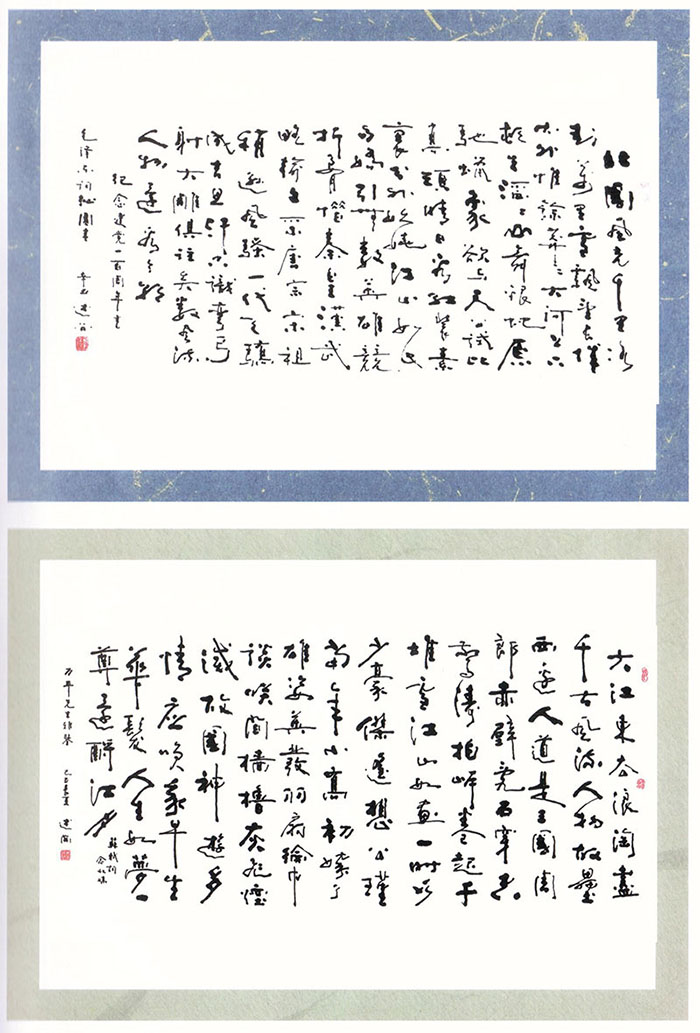 北國風光千里冰
封萬里雪飄望長城
内外惟餘莽々大河上下
頓失滔々山舞銀蛇原
馳蠟象欲與天公試比
高須晴日看紅裝素
裹分外妖嬈江山如此
多嬌引無數英雄競
折腰惜秦皇漢武
略輸文采唐宗宋祖
稍遜風騷一代天驕
成吉思汗只識彎弓
射大雕俱往矣數風流
人物還看今朝
紀念建党一百周年書
毛泽东词沁園春 辛丑
大江東去浪淘盡
千古風流人物故壘
西邊人道是三國周
郎赤壁亂石穿空
驚濤拍岸卷起千
堆雪江山如畫一時多
少豪傑遙想公瑾
當年小喬初嫁了
雄姿英發羽扇綸巾
談笑間檣櫓灰飛煙
滅故國神遊多
情應笑我早生
華髮人生如夢一
尊還酹江月
蘇軾詞
念奴嬌
先生